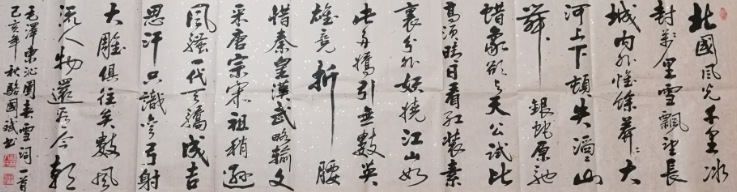 北國風光千里冰
封萬里雪飄望長
城内外惟餘莽々大
河上下頓失滔々山
舞銀蛇原馳
蜡象欲與天公試比
高須晴日看紅裝素
裹分外妖嬈江山如
此多嬌引無數英
雄竟折腰
惜秦皇漢武略輸文
采唐宗宋祖稍遜
風騷一代天驕成吉
思汗只識彎弓射
大雕俱往矣數風
流人物還看今朝
毛澤東沁園春雪詞一首
己亥年秋駱國斌書